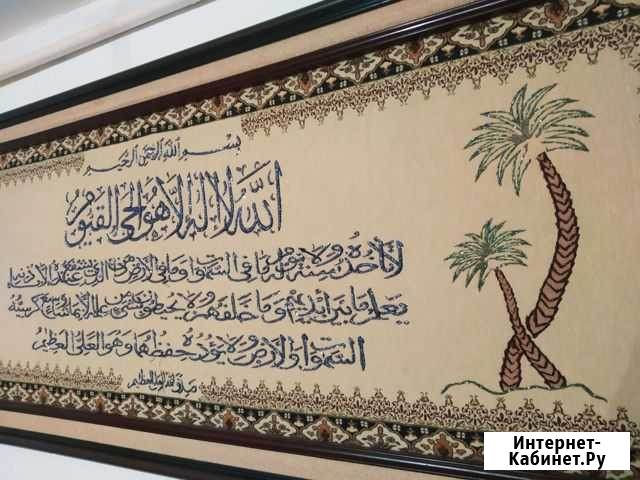 بسم الله الرحمن الرحيم
الله لا إله إلا هو الحي القيوم
لا تأخذه سنة ولا نوم له ما في السموات وما في الأرض من ذا الذي يشفع عنده إلا بإذنه
يعلم ما بين أيديهم وما خلفهم ولا يحيطون بشيء من علمه إلا بما شاء وسع كرسيه
السموات والأرض ولا يؤده حفظهما وهو العلي العظيم
صدق الله العظيم
Интернет-
Кабинет.Ру